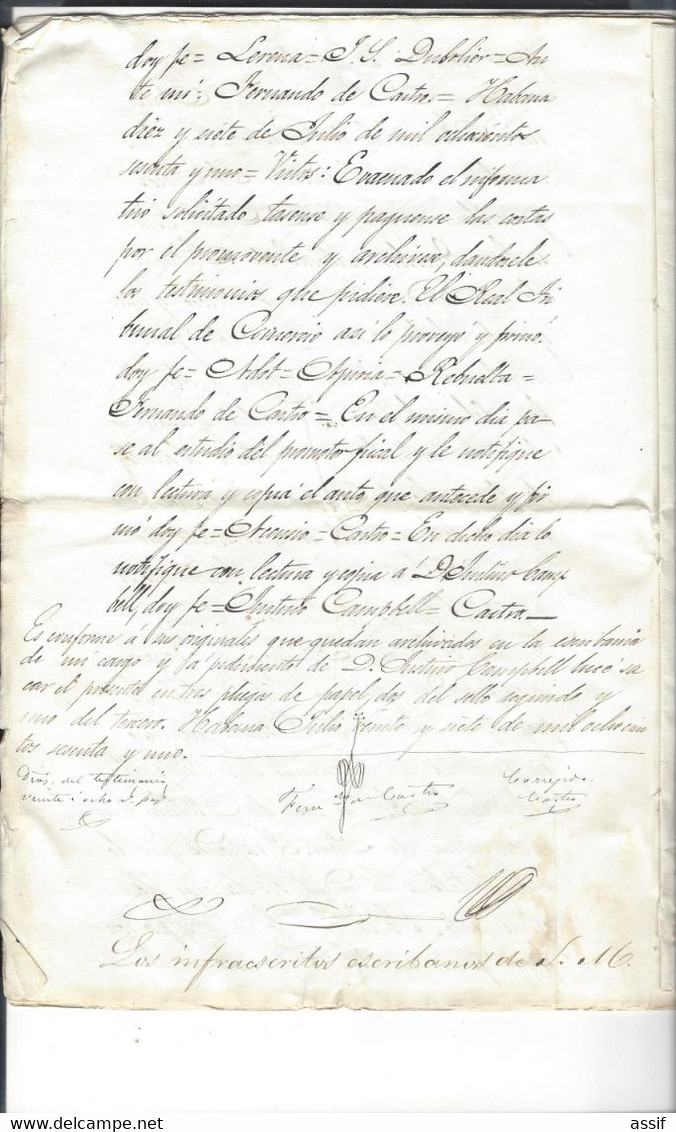 doy fe = Lerena = J. S. Dubolier = An
te mi: Fernando de Castro = Habana
diez y siete de Julio de mil ochocientos
sesenta y uno = Vistos: Evacuado el informa
tivo solicitado tasense y paguense las costas
por el promovente y archivese, dandosele
los testimonios que pidiere. El Real Tri
bunal de Comercio asi lo proveyo y firmó.
doy fe = Adot = = Rebuelta =
Fernando de Castro = En el mismo dia pa-
sé al estudio del promotor fiscal y le notifiqué
con lectura y copia el auto que antecede y fir
mó doy fe = Asencio = Castro = En dicho dia lo
notifiqué con lectura y copia á D. Arturo Camp
bell, doy fe = Arturo Campbell = Castro
Es conforme á sus originales que quedan archivados en la escribania
de mi cargo y á pedimento de D. Arturo Campbell hice sa
car el presente en tres pliegos de papel, dos del sello segundo y
uno del tercero. Habana Julio veinte y siete de mil ochocien
tos sesenta y uno.
Dros. del testimonio
veinte i ocho r.
Fern.do de Castro
Corregido.
Castro
Los infraescritos escribanos de S. M.
assif